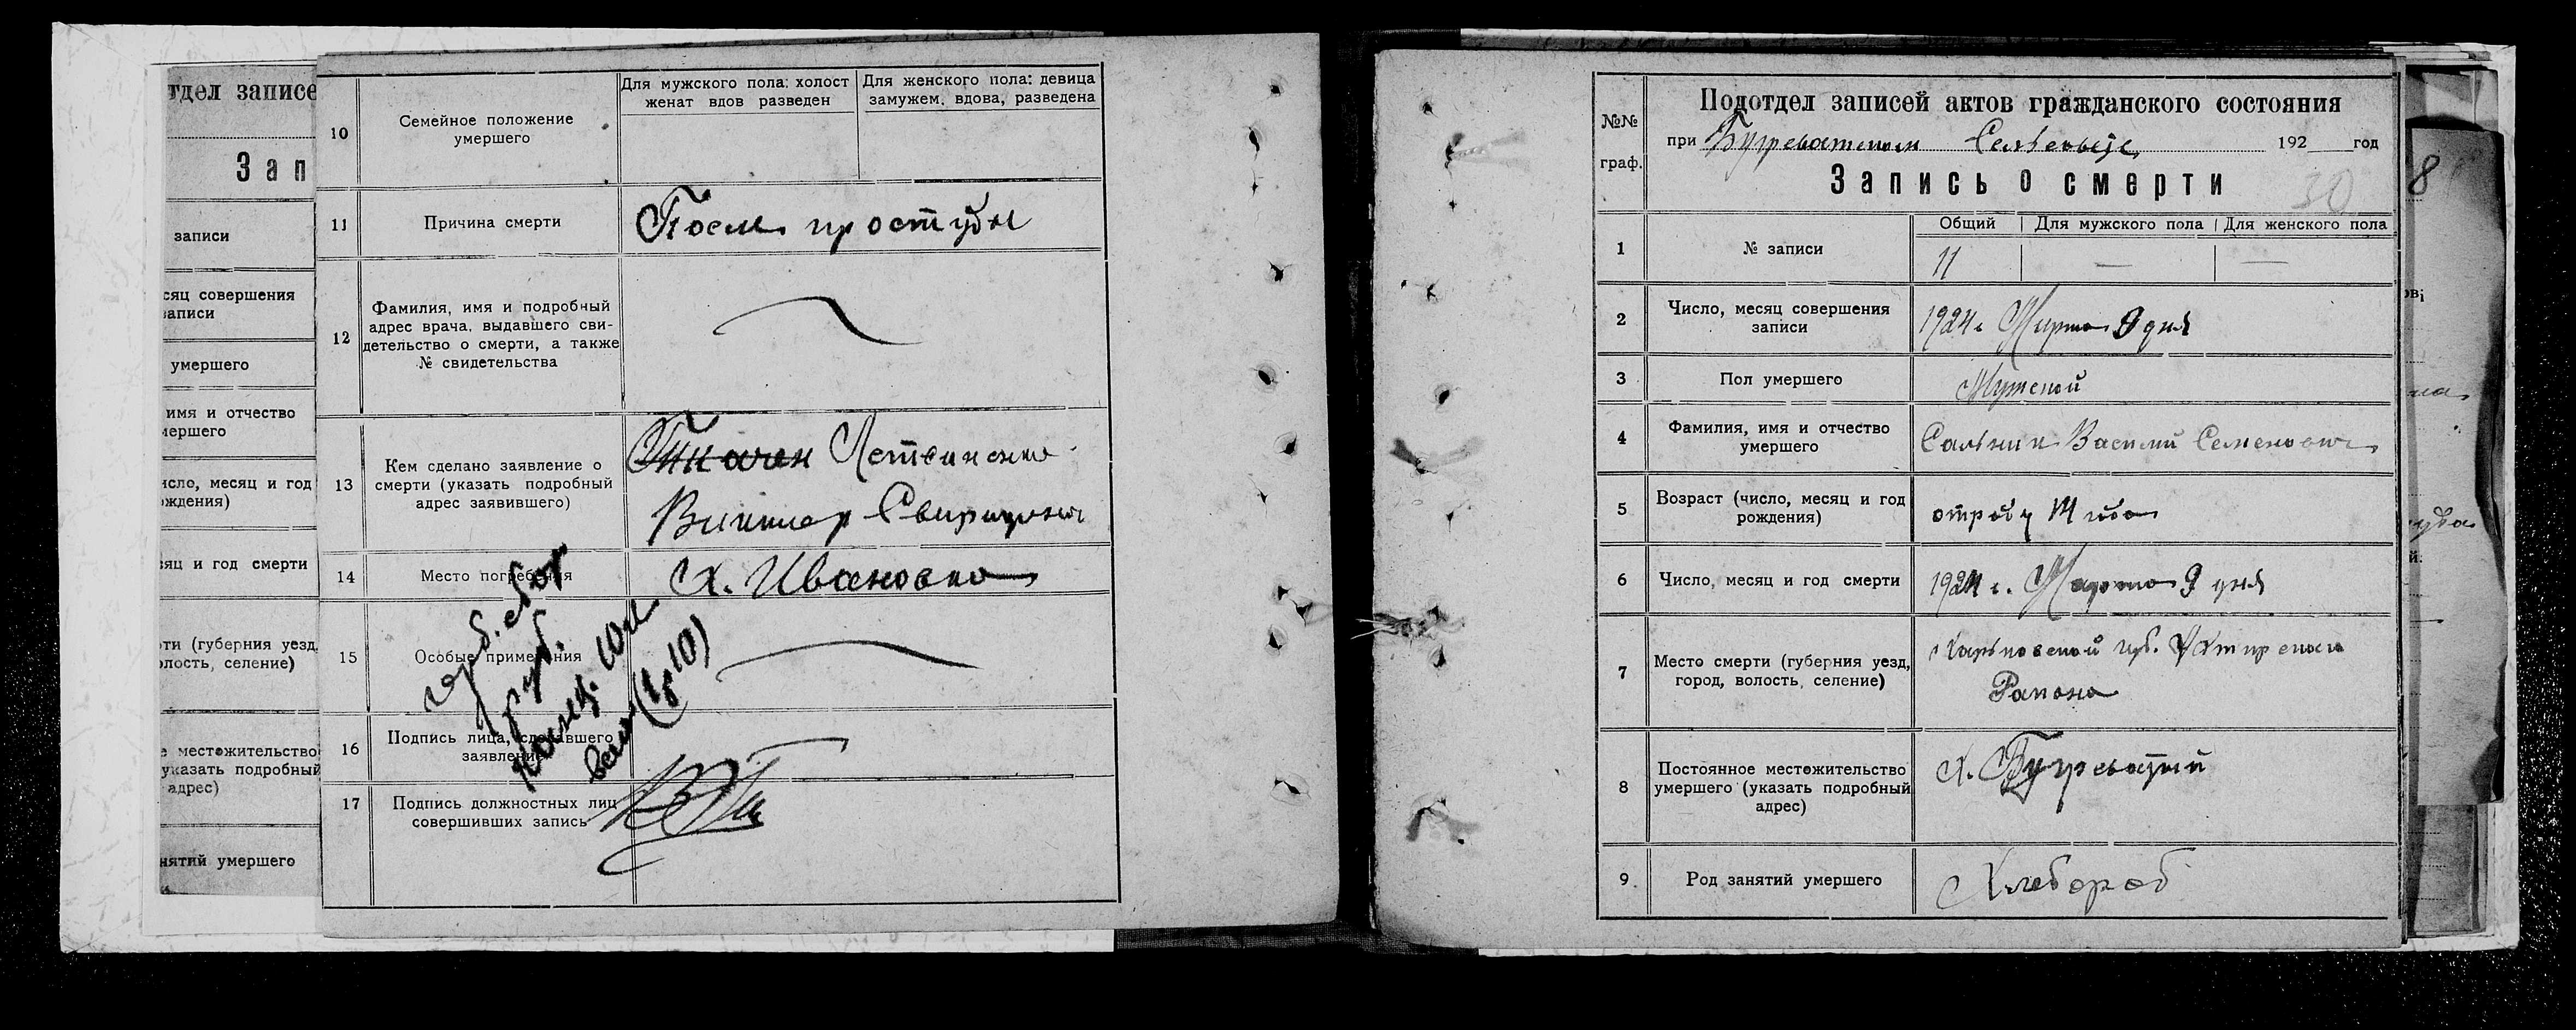 тдел записе
Зап
записи
сяц совершения
записи
умершего
имя и отчество
мершего
исло, месяц и год
ождения)
сяц и год смерти
рти (губерния уезд,
олость, селение)
е местожительство
указать подробный
адрес)
нятий умершего
10 Семейное положение умершего
Для мужского пола: холост женат вдов разведен
Для женского пола: девица замужем, вдова, разведена
11 Причина смерти
После простуды
12 Фамилия, имя и подробный
адрес врача, выдавшего сви-
детельство о смерти, а также
№ свидетельства
13 Кем сделано заявление о
смерти (указать подробный
адрес заявившего)
Литвиненко
Виктор Свиридович
14 Место погребения
х. Ивановка
15 Особые примечания
герб. сбор
1 руб.
канц. 10 к
(1р 10)
16 Подпись лица, сделавшего
заявление
17 Подпись должностных лиц
совершивших запись
№№
граф.
Подотдел записей актов гражданского состояния
при Бугреватском Сельсовете 192 год
Запись о смерти
30
Общий Для мужского пола Для женского пола
1 № записи
11 — —
2 Число, месяц совершения
записи
1924 г Марта 9 дня
3 Пол умершего
Мужской
4 Фамилия, имя и отчество
умершего
Сальник Василий Семенович
5 Возраст (число, месяц и год
рождения)
отроду
6 Число, месяц и год смерти
1924 г. Марта 9 дня
7 Место смерти (губерния уезд,
город, волость, селение)
Харьковской губ. Ахтирского
Района
8 Постоянное местожительство
умершего (указать подробный
адрес)
х. Бугреватый
9 Род занятий умершего
Хлебороб
8